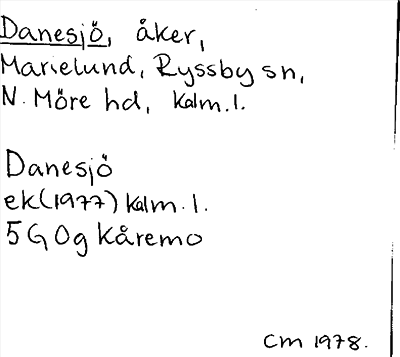 Danesjö, åker,
Marielund, Ryssby sn,
N. Möre hd, Kalm.l.
Danesjö
ek(1977) Kalm.l.
5G 0g Kåremo
CM 1978.